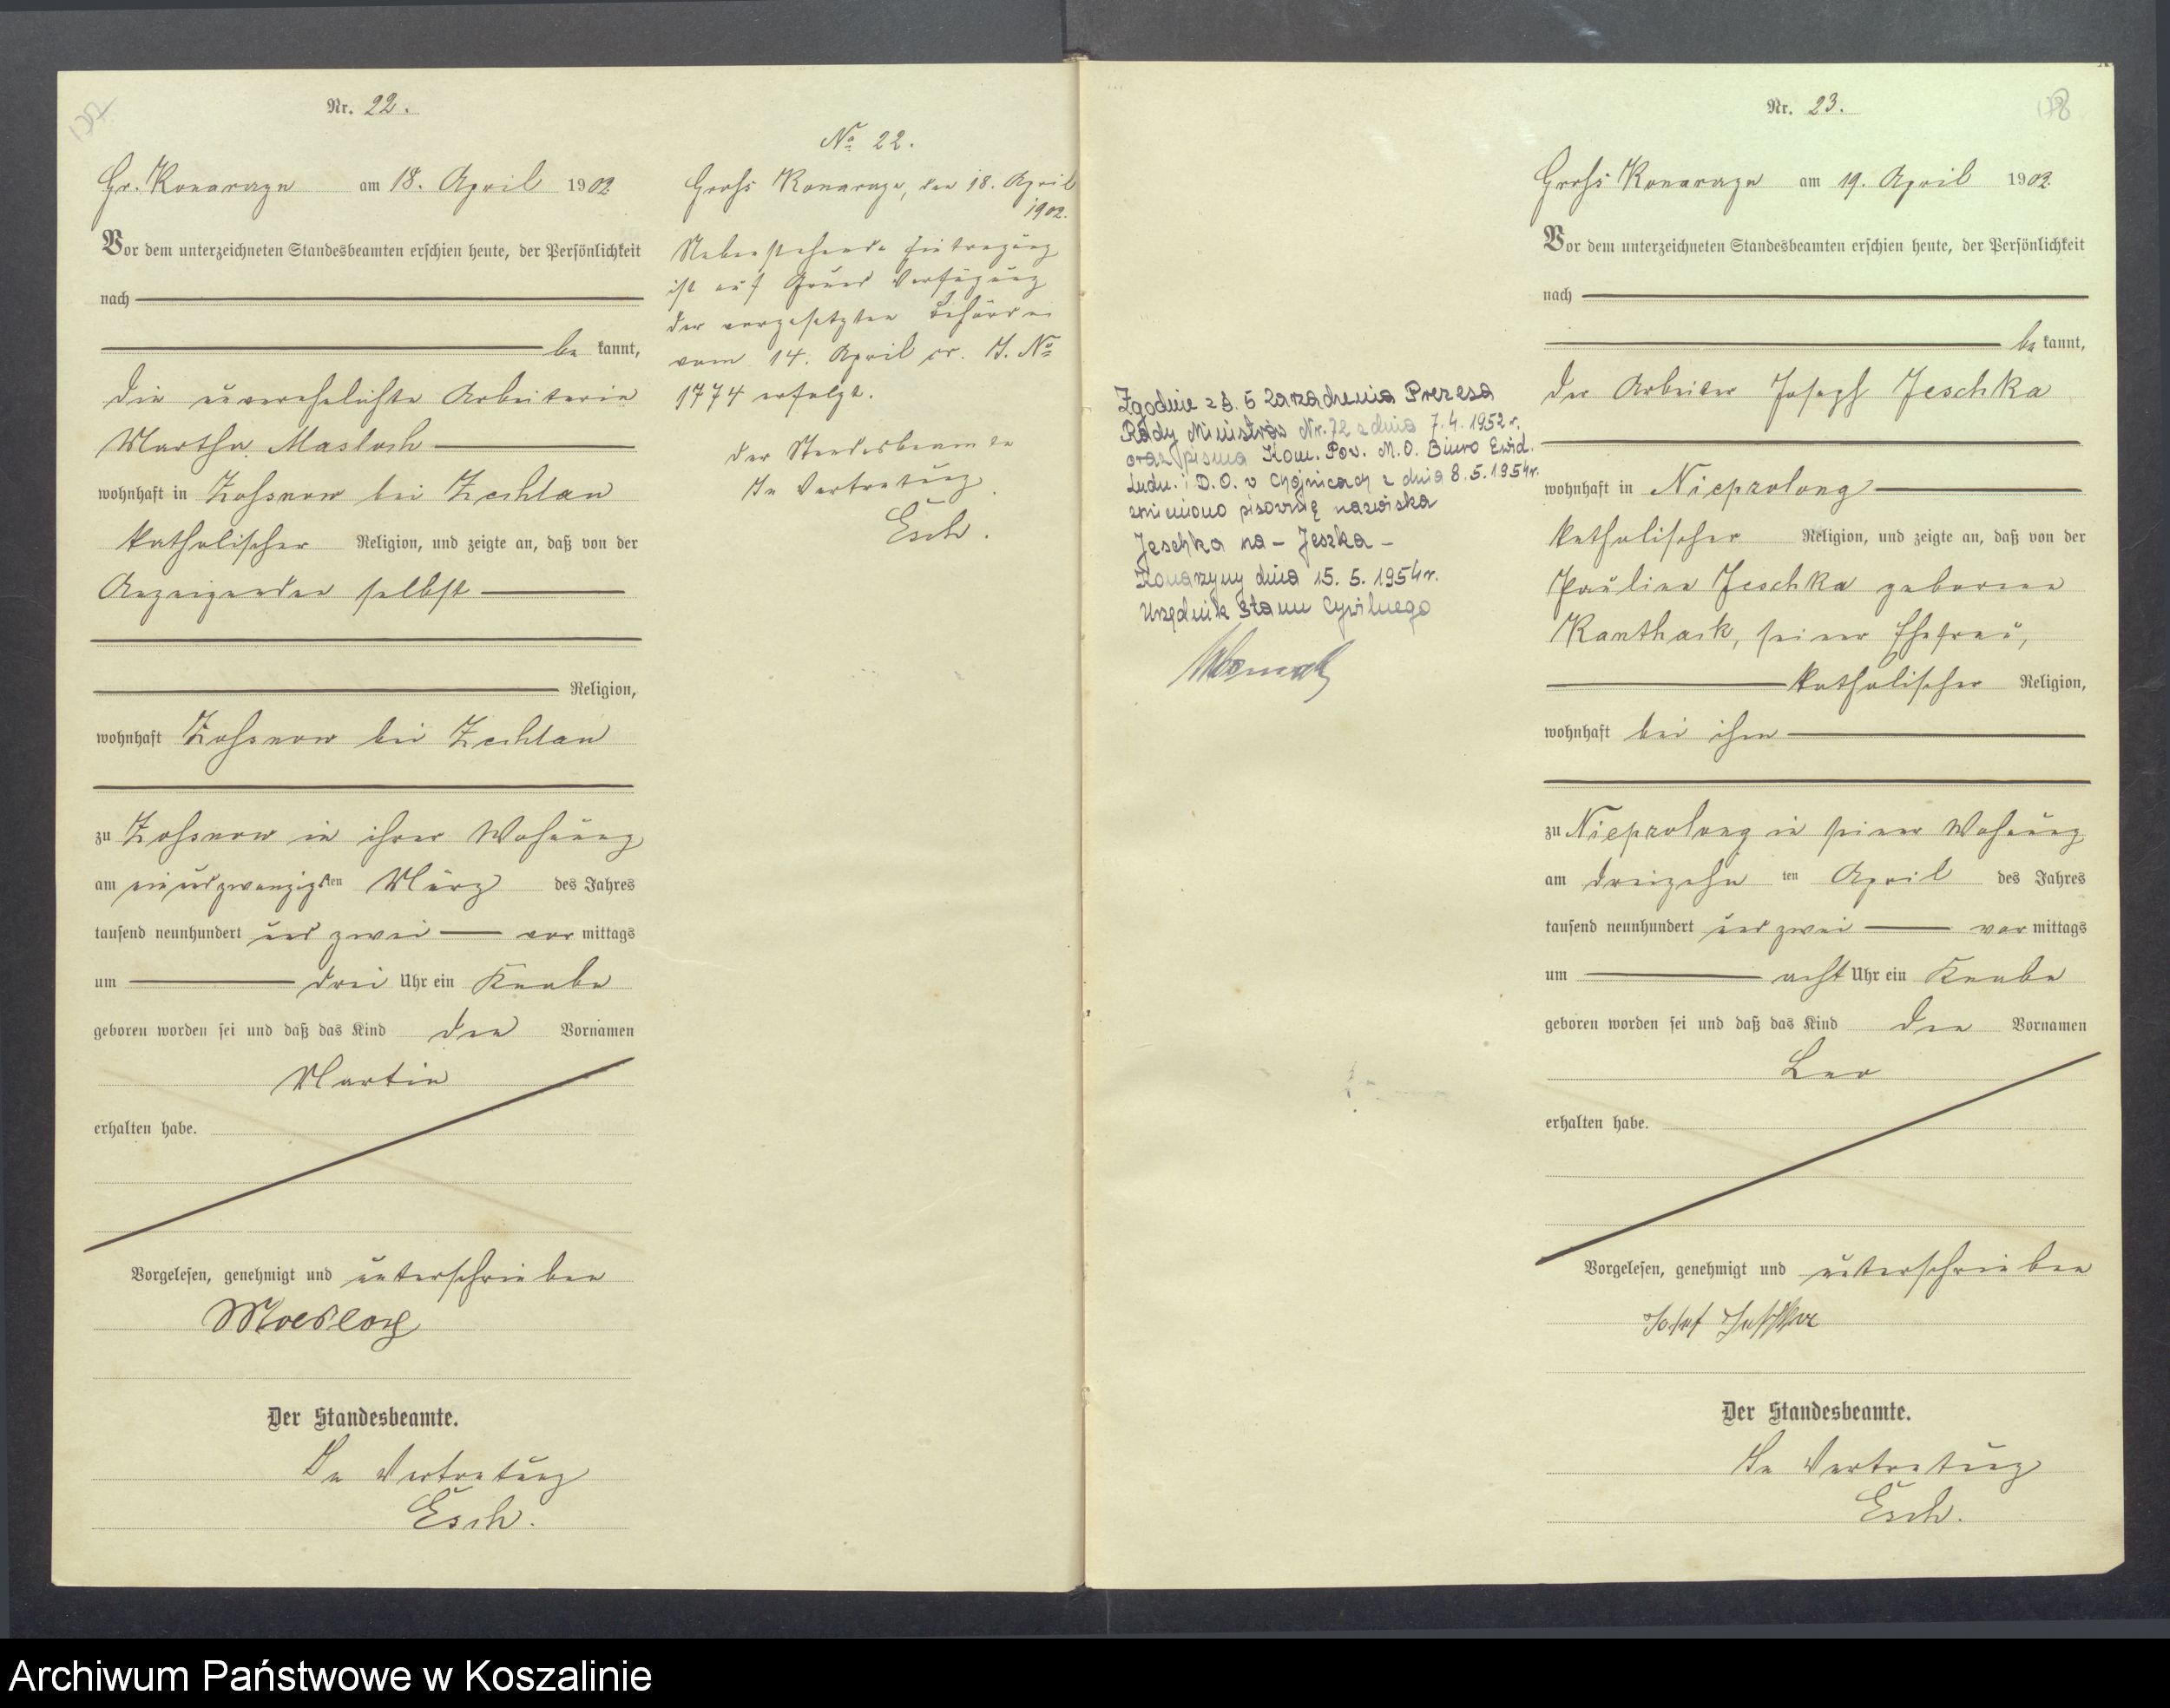 Nr. 22.
Gr. Konarzyn am 18. April 1902
Vor dem unterzeichneten Standesbeamten erschien heute, der Persönlichkeit
nach
be kannt,
die unverehelichte Arbeiterin
Martha Masloch
wohnhaft in Zossnow bei Zechlau
katholischer Religion, und zeigte an, daß von der
Anzeigenden selbst
Religion,
wohnhaft Zossnow bei Zechlau
zu Zossnow in ihrer Wohnung
am einundzwanzigsten März des Jahres
tausend neunhundert und zwei vor mittags
um drei Uhr ein Knabe
geboren worden sei und daß das Kind den Vornamen
Martin
erhalten habe.
Vorgelesen, genehmigt und unterschrieben
Der Standesbeamte.
In Vertretung
Esch.
No 22.
Gross Konarzyn, den 18. April
1902.
Nebenstehende Eintragung
ist auf Grund Verfügung
der vorgesetzten Behörde
vom 14. April cr. J. No
1774 erfolgt.
Der Standesbeamte
In Vertretung
Esch.
Zgodnie z §. 5 Zarządzenia Prezesa
Rady Ministrów Nr. 72 z dnia 7. 4. 1952 r.
oraz pisma Kom. Pow. M. O. Biuro Ewid.
Ludn. i D. O. w Chojnicach z dnia 8. 5. 1954 r.
zmieniono pisownię nazwiska
Jeschka na - Jeszka -
Konarzyny dnia 15. 5. 1954 r.
Urzędnik Stanu Cywilnego
Nr. 23.
Gross Konarzyn am 19. April 1902.
Vor dem unterzeichneten Standesbeamten erschien heute, der Persönlichkeit
nach
be kannt,
der Arbeiter Joseph Jeschka
wohnhaft in Nieprolong
katholischer Religion, und zeigte an, daß von der
Pauline Jeschka geborene
Kanthack, seiner Ehefrau,
katholischer Religion,
wohnhaft bei ihm
zu Nieprolong in seiner Wohnung
am dreizehn ten April des Jahres
tausend neunhundert und zwei vor mittags
um acht Uhr ein Knabe
geboren worden sei und daß das Kind den Vornamen
Leo
erhalten habe.
Vorgelesen, genehmigt und unterschrieben
Josef Jeschka
Der Standesbeamte.
In Vertretung
Esch.
Archiwum Państwowe w Koszalinie